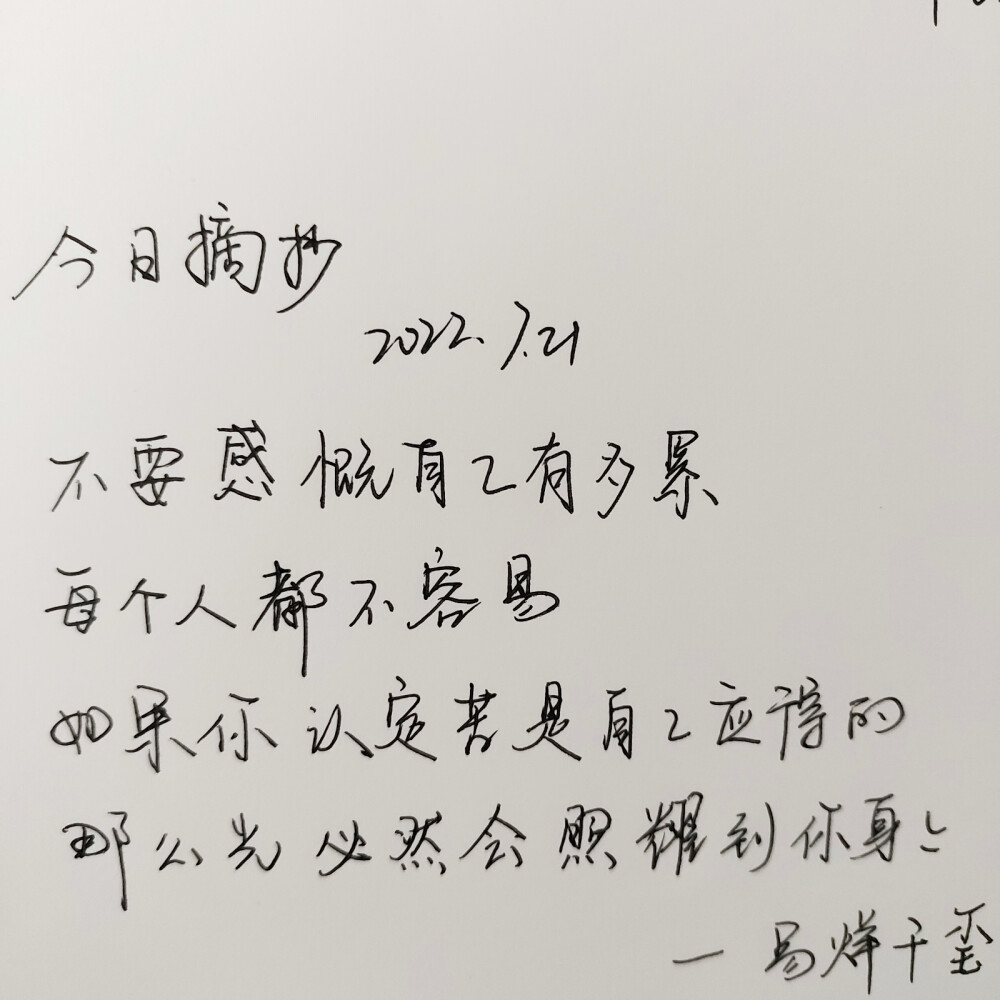 今日摘抄
2022.7.21
不要感慨自己有多累
每个人都不容易
如果你认定苦是自己应得的
那么光必然会照耀到你身上
—易烊千玺